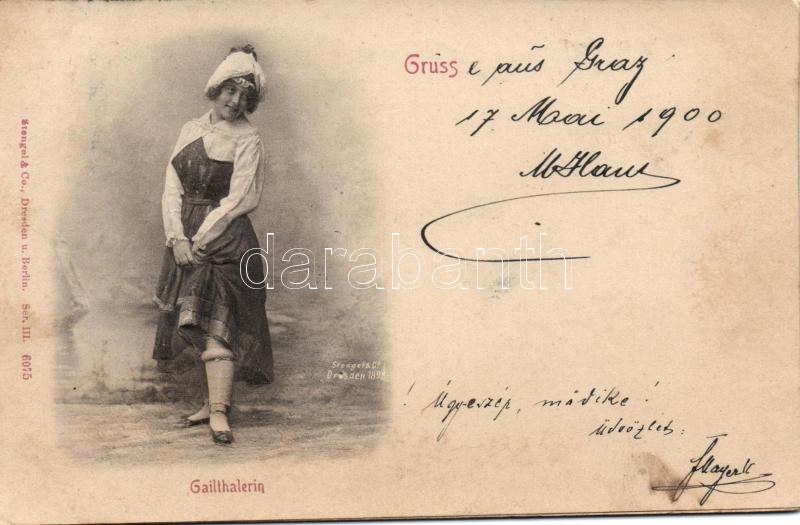 Gruss e aus Graz
17 Mai 1900
Stengel & Co., Dresden u. Berlin. Ser. III. 6075
darabanth
Stengel & Co
Dresden 189
! Ugyeszép, mádike!
üdvözlet:
Gailthalerin